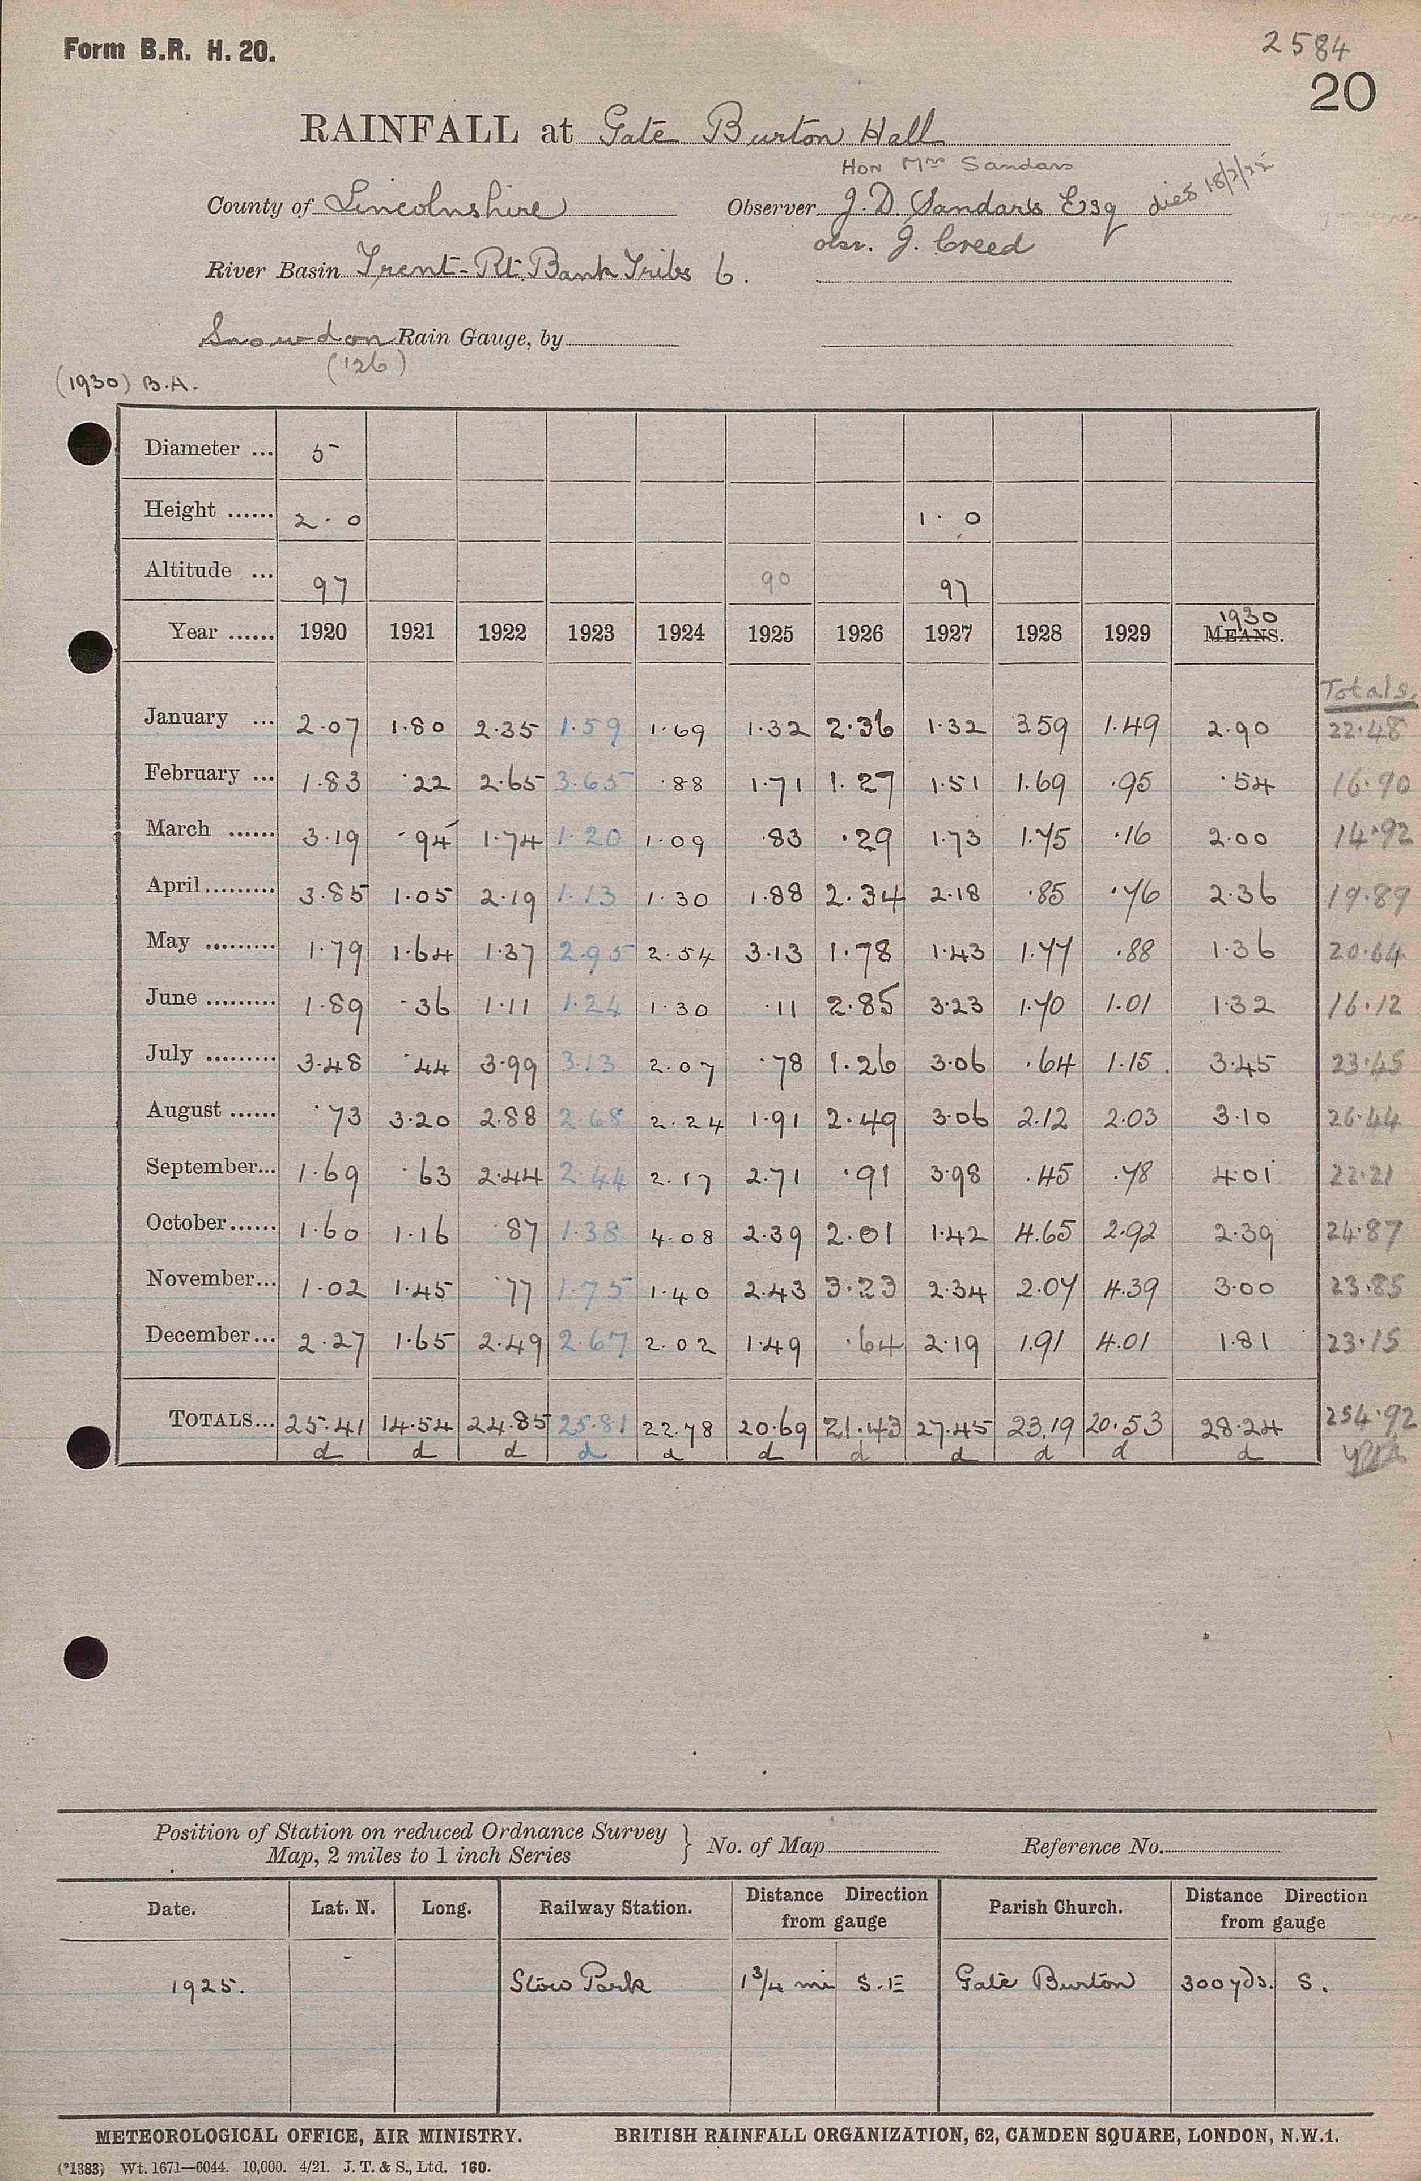 Form B.R. H. 20.
2584
20
RAINFALL at Gate Burton Hall
Hon Mrs Sandars
County of Lincolnshire Observer J. D. Sandars Esq died 18/2/22
obsr. J. Creed
River Basin Trent - Rt. Bank Tribs 6.
Snowdon Rain Gauge, by
(126)
(1930) B.A.
Diameter ... 5
Height ...... 2.0 1.0
Altitude ... 97 90 97
Year ...... 1920 1921 1922 1923 1924 1925 1926 1927 1928 1929 1930 MEANS.
Totals.
January ... 2.07 1.80 2.35 1.59 1.69 1.32 2.36 1.32 3.59 1.49 2.90 22.48
February ... 1.83 .22 2.65 3.65 .88 1.71 1.27 1.51 1.69 .95 .54 16.90
March ...... 3.19 .94 1.74 1.20 1.09 .83 .29 1.73 1.75 .16 2.00 14.92
April ......... 3.85 1.05 2.19 1.13 1.30 1.88 2.34 2.18 .85 .76 2.36 19.89
May ......... 1.79 1.64 1.37 2.95 2.54 3.13 1.78 1.43 1.77 .88 1.36 20.64
June ......... 1.89 .36 1.11 1.24 1.30 .11 2.85 3.23 1.70 1.01 1.32 16.12
July ......... 3.48 .44 3.99 3.13 2.07 .78 1.26 3.06 .64 1.15 3.45 23.45
August ...... .73 3.20 2.88 2.68 2.24 1.91 2.49 3.06 2.12 2.03 3.10 26.44
September... 1.69 .63 2.44 2.44 2.17 2.71 .91 3.98 .45 .78 4.01 22.21
October...... 1.60 1.16 .87 1.38 4.08 2.39 2.01 1.42 4.65 2.92 2.39 24.87
November... 1.02 1.45 .77 1.75 1.40 2.43 3.23 2.34 2.07 4.39 3.00 23.85
December... 2.27 1.65 2.49 2.67 2.02 1.49 .64 2.19 1.91 4.01 1.81 23.15
TOTALS... 25.41 14.54 24.85 25.81 22.78 20.69 21.43 27.45 23.19 20.53 28.24 254.92
d d d d d d d d d d d
Position of Station on reduced Ordnance Survey
Map, 2 miles to 1 inch Series } No. of Map Reference No.
Date. Lat. N. Long. Railway Station. Distance Direction from gauge Parish Church. Distance Direction from gauge
1925. Stow Park 1 3/4 mi S.E Gate Burton 300 yds. S.
METEOROLOGICAL OFFICE, AIR MINISTRY. BRITISH RAINFALL ORGANIZATION, 62, CAMDEN SQUARE, LONDON, N.W.1.
(*1383) Wt. 1671—6044. 10,000. 4/21. J. T. & S., Ltd. 160.